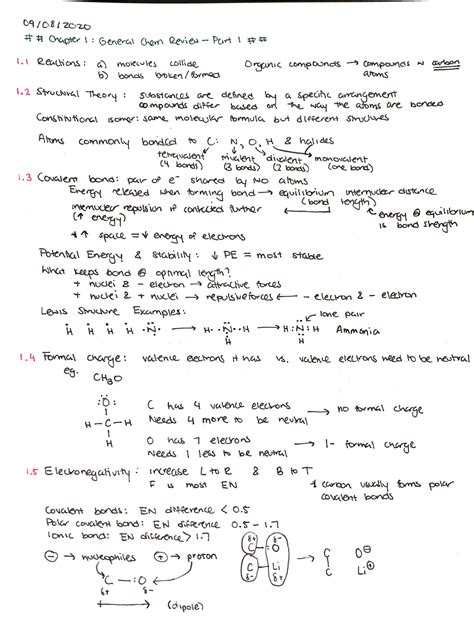 09/08/2020
# # Chapter 1: General Chem Review - Part 1 # #
1.1 Reactions: a) molecules collide
b) bonds broken/formed
Organic compounds → compounds w carbon
atoms
1.2 Structural Theory: substances are defined by a specific arrangement
compounds differ based on the way the atoms are bonded
Constitutional isomer: same molecular formula but different structures
Atoms commonly bonded to C: N, O, H & halides
tetravalent trivalent divalent monovalent
(4 bonds) (3 bonds) (2 bonds) (one bonds)
1.3 Covalent bonds: pair of e⁻ shared by NO atoms
Energy released when forming bond → equilibrium internuclear distance
(bond length)
internuclear repulsion if contracted further
(↑ energy)
energy @ equilibrium
is bond strength
↑ space = ↓ energy of electrons
Potential Energy & stability: ↓ PE = most stable
What keeps bond @ optimal length?
+ nuclei & - electron → attractive forces
+ nuclei & + nuclei → repulsive forces ← - electron & - electron
Lewis Structure Examples:
lone pair
H H H N → H N H → H:N:H Ammonia
H H
1.4 Formal charge: valence electrons it has vs. valence electrons need to be neutral
eg. CH₃O
:O:
H-C-H
H
C has 4 valence electrons → no formal charge
Needs 4 more to be neutral
O has 7 electrons → 1- formal charge
Needs 1 less to be neutral
1.5 Electronegativity: increase L to R & B to T
F is most EN
carbon usually forms polar
covalent bonds
Covalent bonds: EN difference < 0.5
Polar covalent bond: EN difference 0.5 - 1.7
Ionic bond: EN difference > 1.7
⊖ → nucleophiles ⊕ → proton
C-O
δ+ δ-
(dipole)
δ+ δ-
C-O
C-Li
δ- δ+
C O⊖
C Li⊕